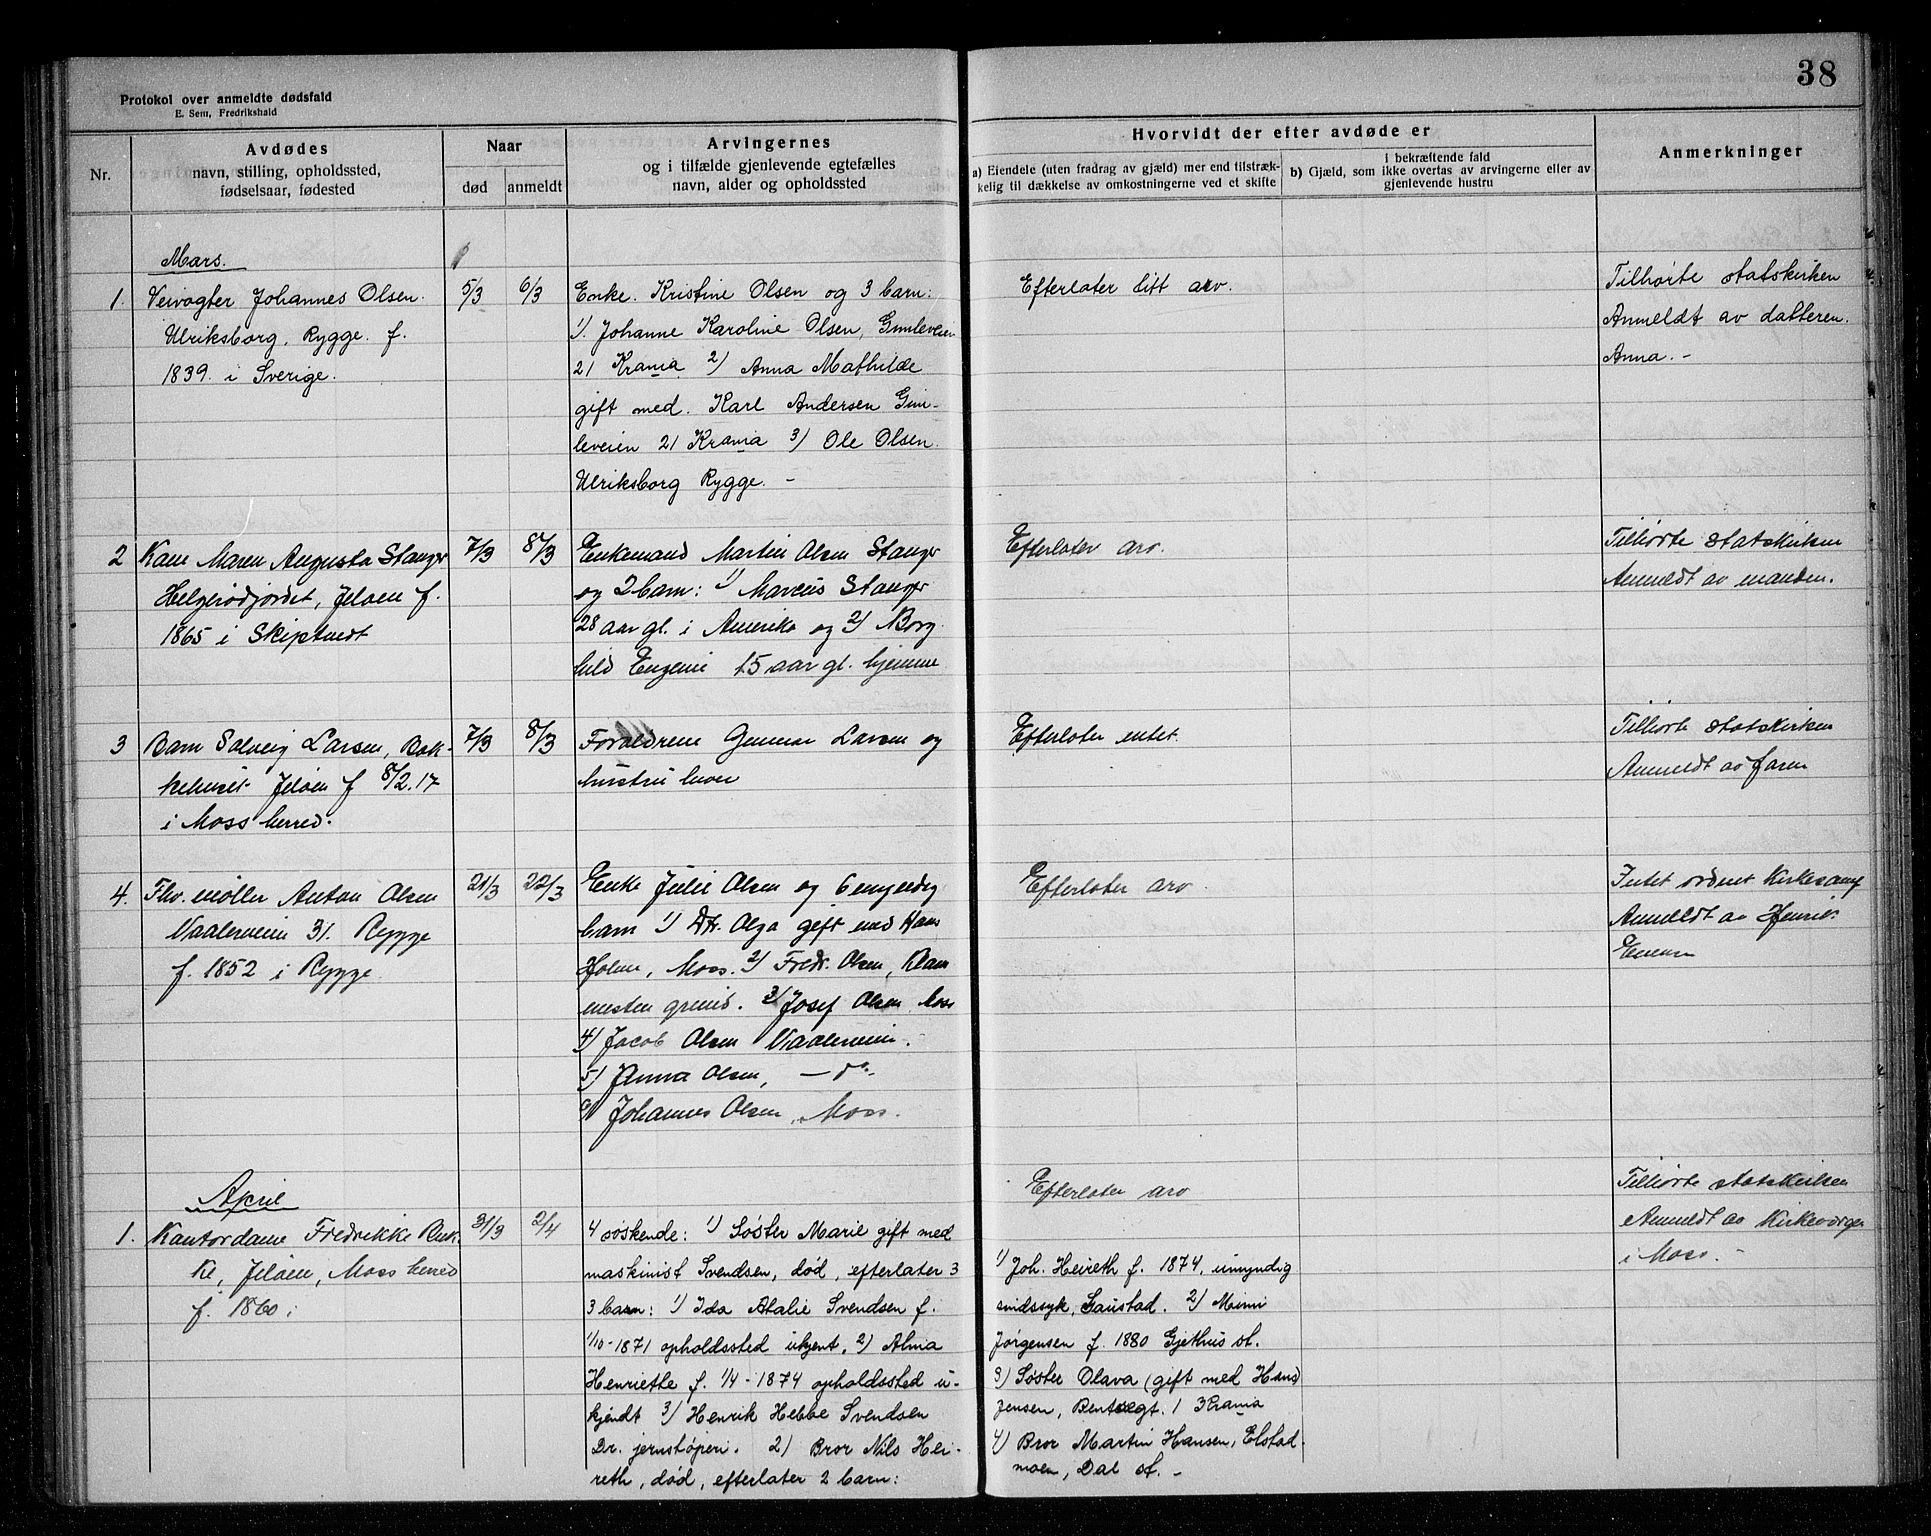 38
Protokol over anmeldte dødsfald
E. Sem, Fredrikshald
Nr.
Avdødes
navn, stilling, opholdssted,
fødselsaar, fødested
Naar
død
anmeldt
Arvingernes
og i tilfælde gjenlevende egtefælles
navn, alder og opholdssted
Hvorvidt der efter avdøde er
a) Eiendele (uten fradrag av gjæld) mer end tilstræk-
kelig til dækkelse av omkostningerne ved et skifte
i bekræftende fald
b) Gjæld, som ikke overtas av arvingerne eller av
gjenlevende hustru
Anmerkninger
Mars.
1. Veivogter Johannes Olsen.
Ulriksborg, Rygge. f.
1839. i Sverige.
5/3
6/3
Enke. Kristine Olsen og 3 barn:
1). Johanne Karoline Olsen, Gimleveien
21 Krania 2) Anna Mathilde
gift med. Karl Andersen Gim-
leveien 21 Krania 3) Ole Olsen.
Ulriksborg Rygge. -
Efterlater litt arv.
Tilhørte statskirken
Anmeldt av datteren.
Anna. -
2 Kone Maren Augusta Stanger
Helgerødjordet, Jeløen f.
1865 i Skiptvedt
7/3
8/3
Enkemand Martin Olsen Stanger
og 2 barn: 1) Marcus Stanger
28 aar gl. i Amerika og 2) Borg-
hild Eugenie 15 aar gl. hjemme
Efterlater arv.
Tilhørte statskirken
Anmeldt av manden.
3 Barn Solveig Larsen, Bak-
kehuset Jeløen f 8/2.17
i Moss herred.
7/3
8/3
Forældrene Gunnar Larsen og
hustru
Efterlater intet.
Tilhørte statskirken
Anmeldt av faren
4. Fhv. møller Anton Olsen
Vaalerveien 31. Rygge
f. 1852 i Rygge
21/3
22/3
Enke Julie Olsen og 6 myndig
barn 1) Dtr. Olga gift med Hans
Holm, Moss. 2) Fredr. Olsen,
grund. 3) Josef Olsen Moss
4) Jacob Olsen Vaalerveien.
5) Anna Olsen, — do.
6) Johannes Olsen, Moss.
Efterlater arv.
Intet ordnet kirkesamf
Anmeldt av Henrik
April
1. Kontordame Fredrikke Buk-
ke, Jeløen, Moss herred
f. 1860 i
31/3
2/4
4 søskende: 1) Søster Marie gift med
maskinist Svendsen, død, efterlater 3
3 barn: 1) Ida Atalie Svendsen f.
1/10-1871 opholdssted ukjent, 2) Alma
Henriette f. 1/4-1874 opholdssted u-
kjendt 3) Henrik Hebbe Svendsen
Dr. jernstøperi. 2) Bror Nils Hei-
reth, død, efterlater 2 barn:
Efterlater arv
1) Joh. Heireth f. 1874, umyndig
sindssyk, Gaustad. 2) Mimi
Jørgensen f. 1880 Gjethus st.
3) Søster Olava (gift med Hans
Jensen, Bentsegt. 1 Krania
4) Bror Martin Hansen, Elstad-
moen, Dal st. -
Tilhørte statskirken
Anmeldt av Kirkeverger
i Moss. -